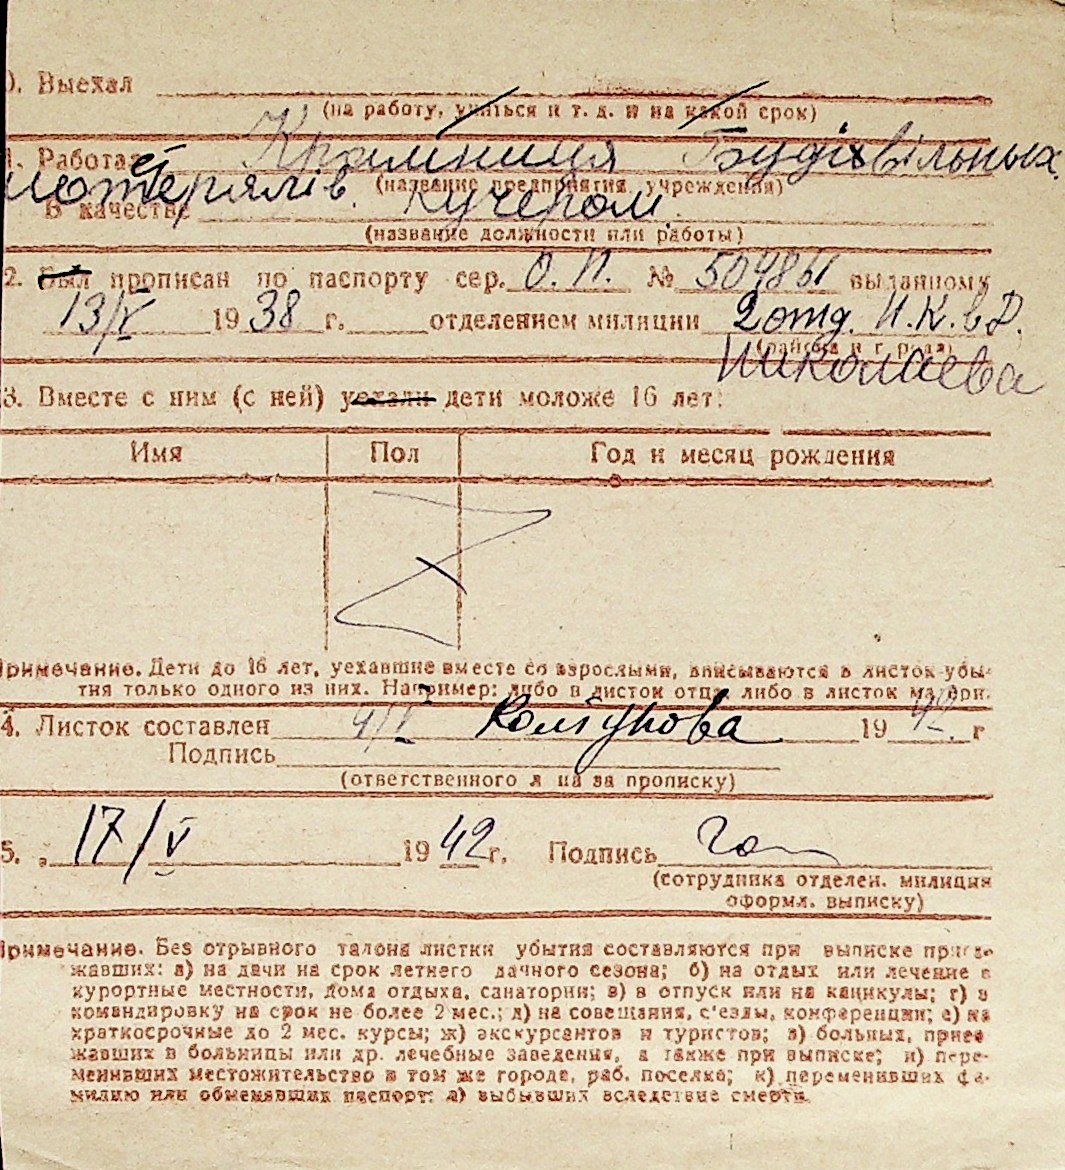 0. Выехал
(на работу, учиться и т. д. и на какой срок)
1. Работает Крамниця Будівільных
матерялів.
(название предприятия, учреждения)
В качестве кучером.
(название должности или работы)
2. Был прописан по паспорту сер. О.П. № выданному
13/V 1938 г. отделением милиции 2 отд. Н.К.В.Д.
(района и города)
Николаева
3. Вместе с ним (с ней) уехали дети моложе 16 лет:
Имя Пол Год и месяц рождения
Примечание. Дети до 16 лет, уехавшие вместе со взрослыми, вписываются в листок убы-
тия только одного из них. Например: либо в листок отца либо в листок матери.
4. Листок составлен 4/V 1942 г
Подпись
(ответственного лица за прописку)
5. 17/V 1942 г. Подпись
(сотрудника отделен. милиции
оформл. выписку)
Примечание. Без отрывного талона листки убытия составляются при выписке приез-
жавших: а) на дачи на срок летнего дачного сезона; б) на отдых или лечение в
курортные местности, дома отдыха, санатории; в) в отпуск или на каникулы; г) в
командировку на срок не более 2 мес.; д) на совещания, с'езды, конференции; е) на
краткосрочные до 2 мес. курсы; ж) экскурсантов и туристов; з) больных, приез
жавших в больницы или др. лечебные заведения, а также при выписке; и) пере-
менивших местожительство в том же городе, раб. поселке; к) переменивших фа-
милию или обменявших паспорт; л) выбывших вследствие смерти.